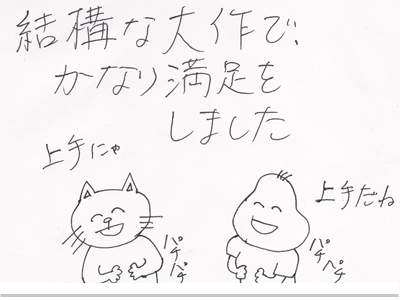 結構な大作で、
かなり満足を
しました
上手にゃ
上手だね
パチ
パチ
パチ
パチ